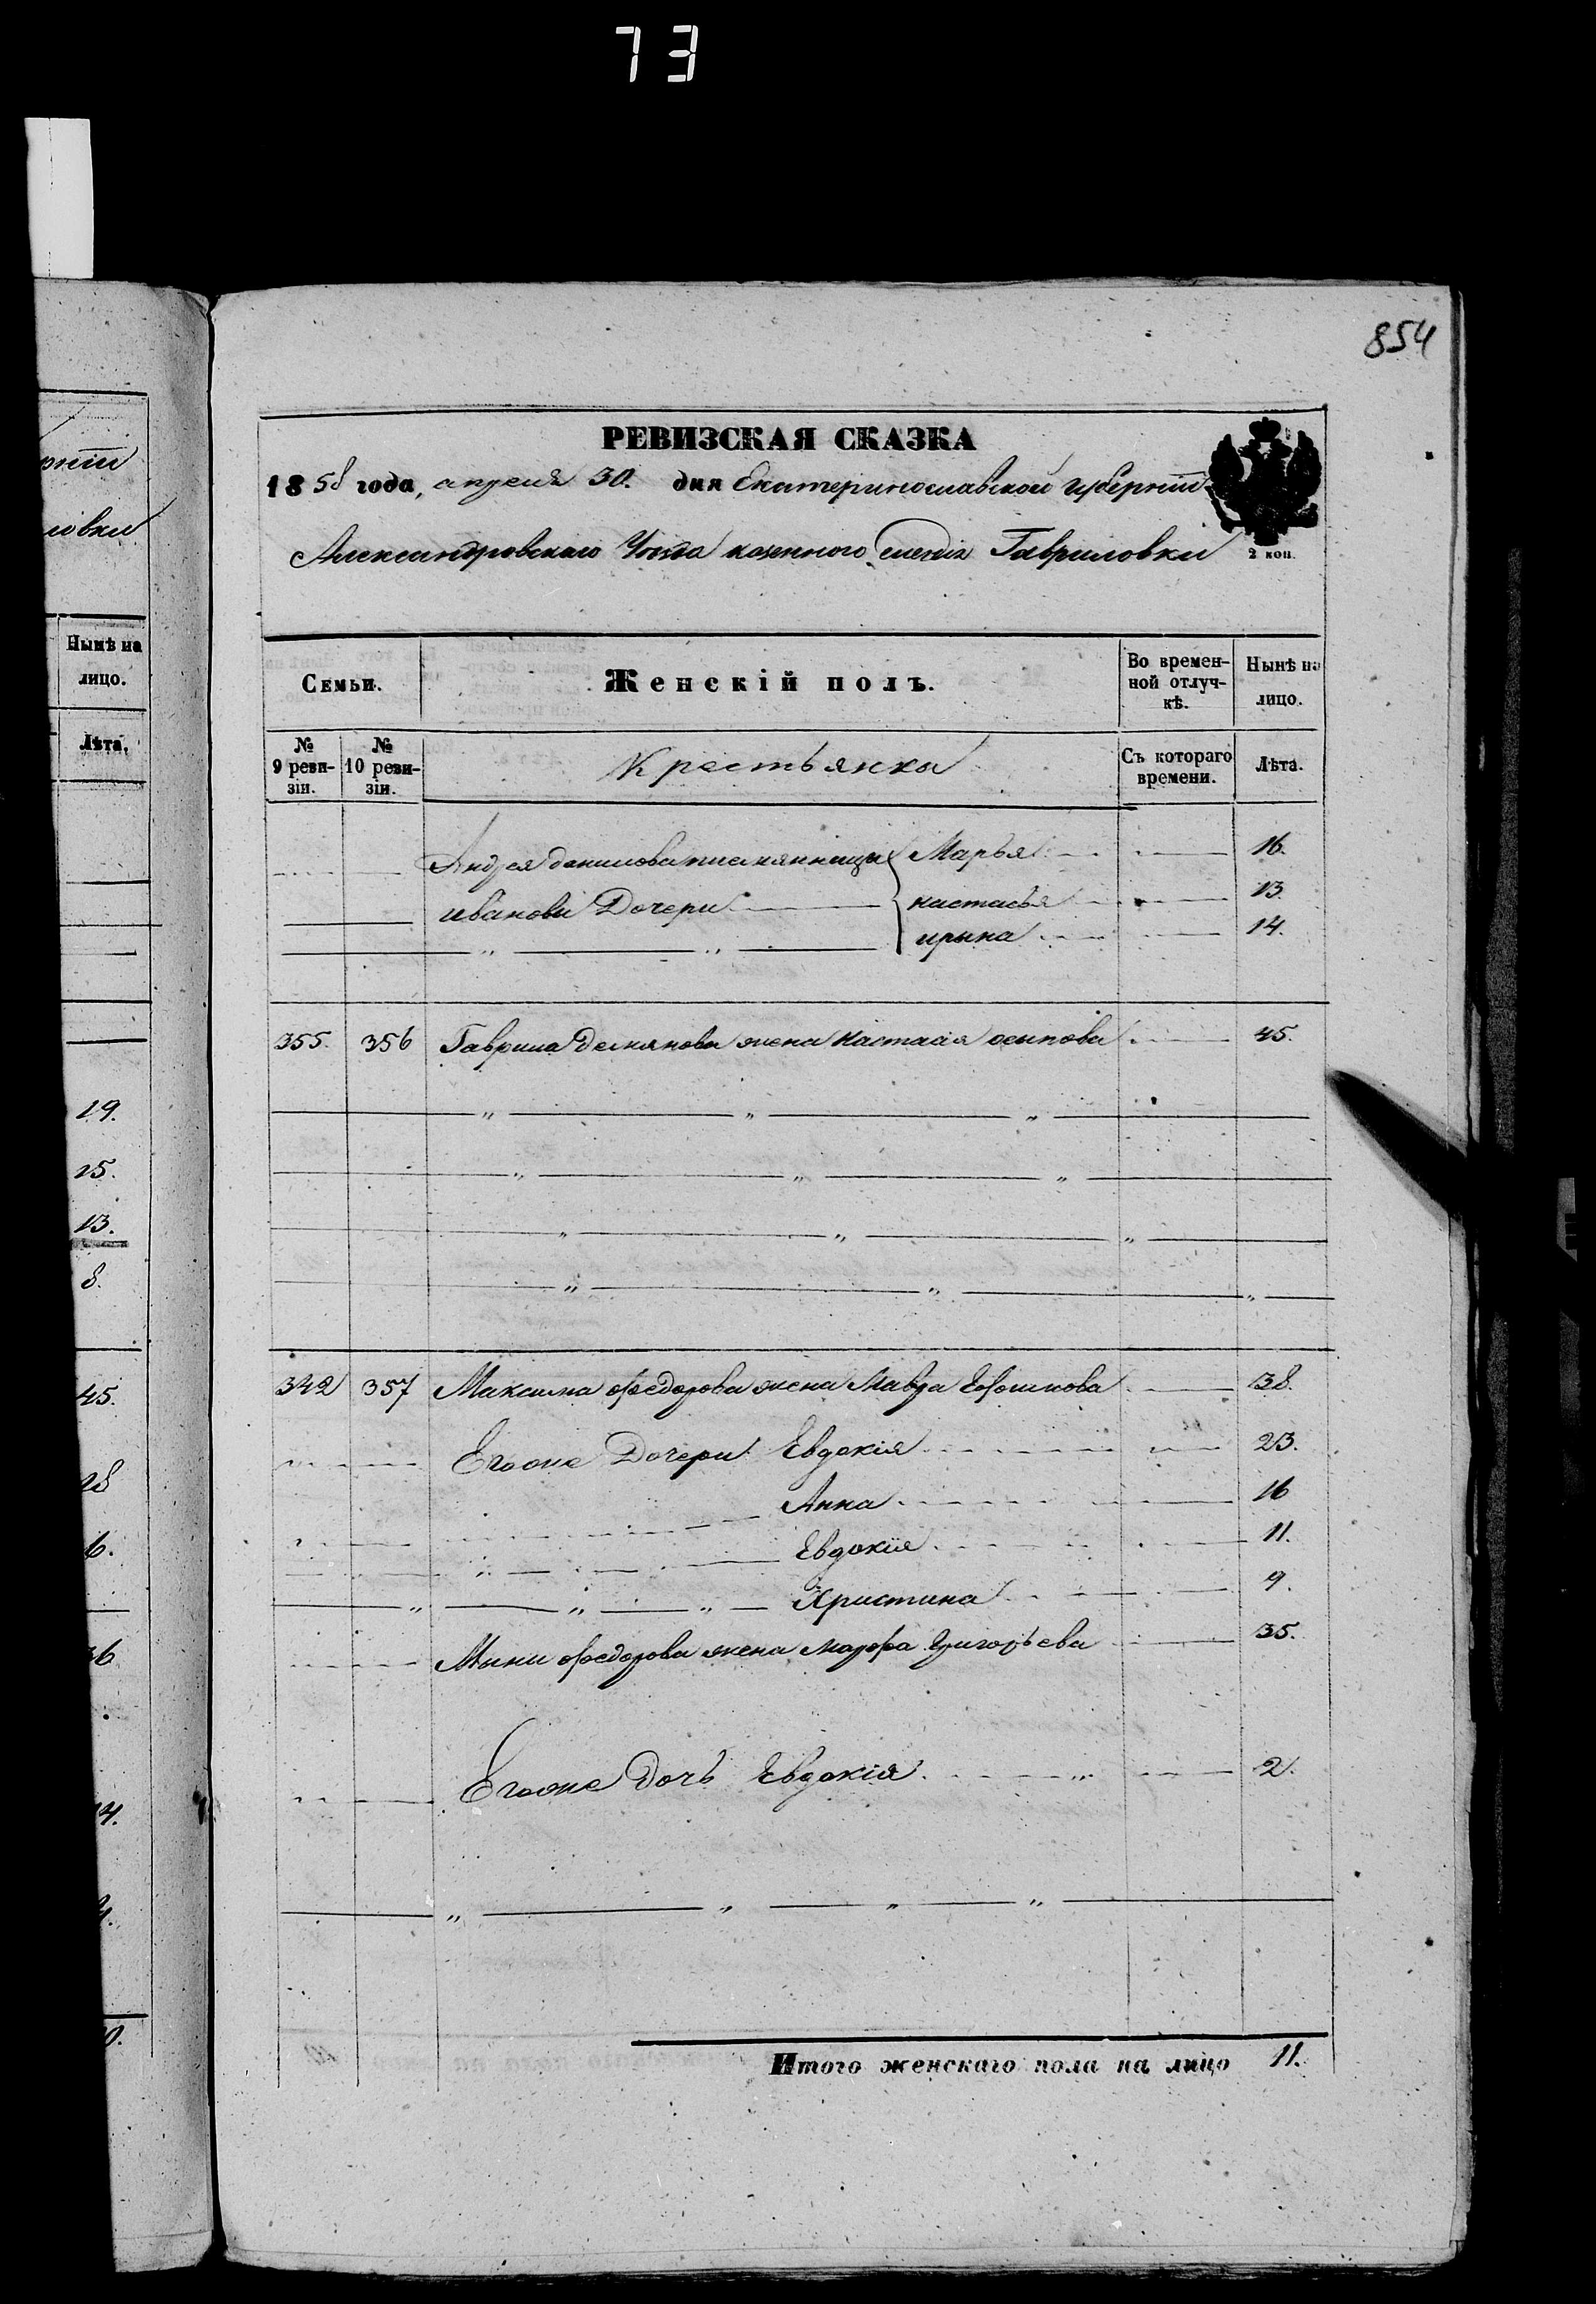 73
854
РЕВИЗСКАЯ СКАЗКА
1858 года, апреля 30. дня Екатеринославской губернiи
Александровского Уезда казенного селенiя Гавриловки
2 коп.
Семьи. Женскiй полъ. Во времен- Нынѣ на
ной отлуч- лицо.
кѣ.
№ 9 реви- зiи. № 10 реви- зiи. Крестьянки Съ котораго времени. Лѣта.
Андрея данилова племянници Марья 16.
Иванови Дочери настасья 13.
ирына 14.
355. 356 Гаврила Демянова жена Настасiя осипова 45.
342 357 Максима федорова жена Мавра 38.
Егооже Дочери Евдокiя 23.
Анна 16
Евдокiя 11.
Христина 9.
федорова жена марфа Григорьева 35.
Егооже дочь Евдокiя 2.
Итого женскаго пола на лицо 11.
рнiи
ловки
Нынѣ на
лицо.
Лѣта.
19.
15.
13.
8.
45.